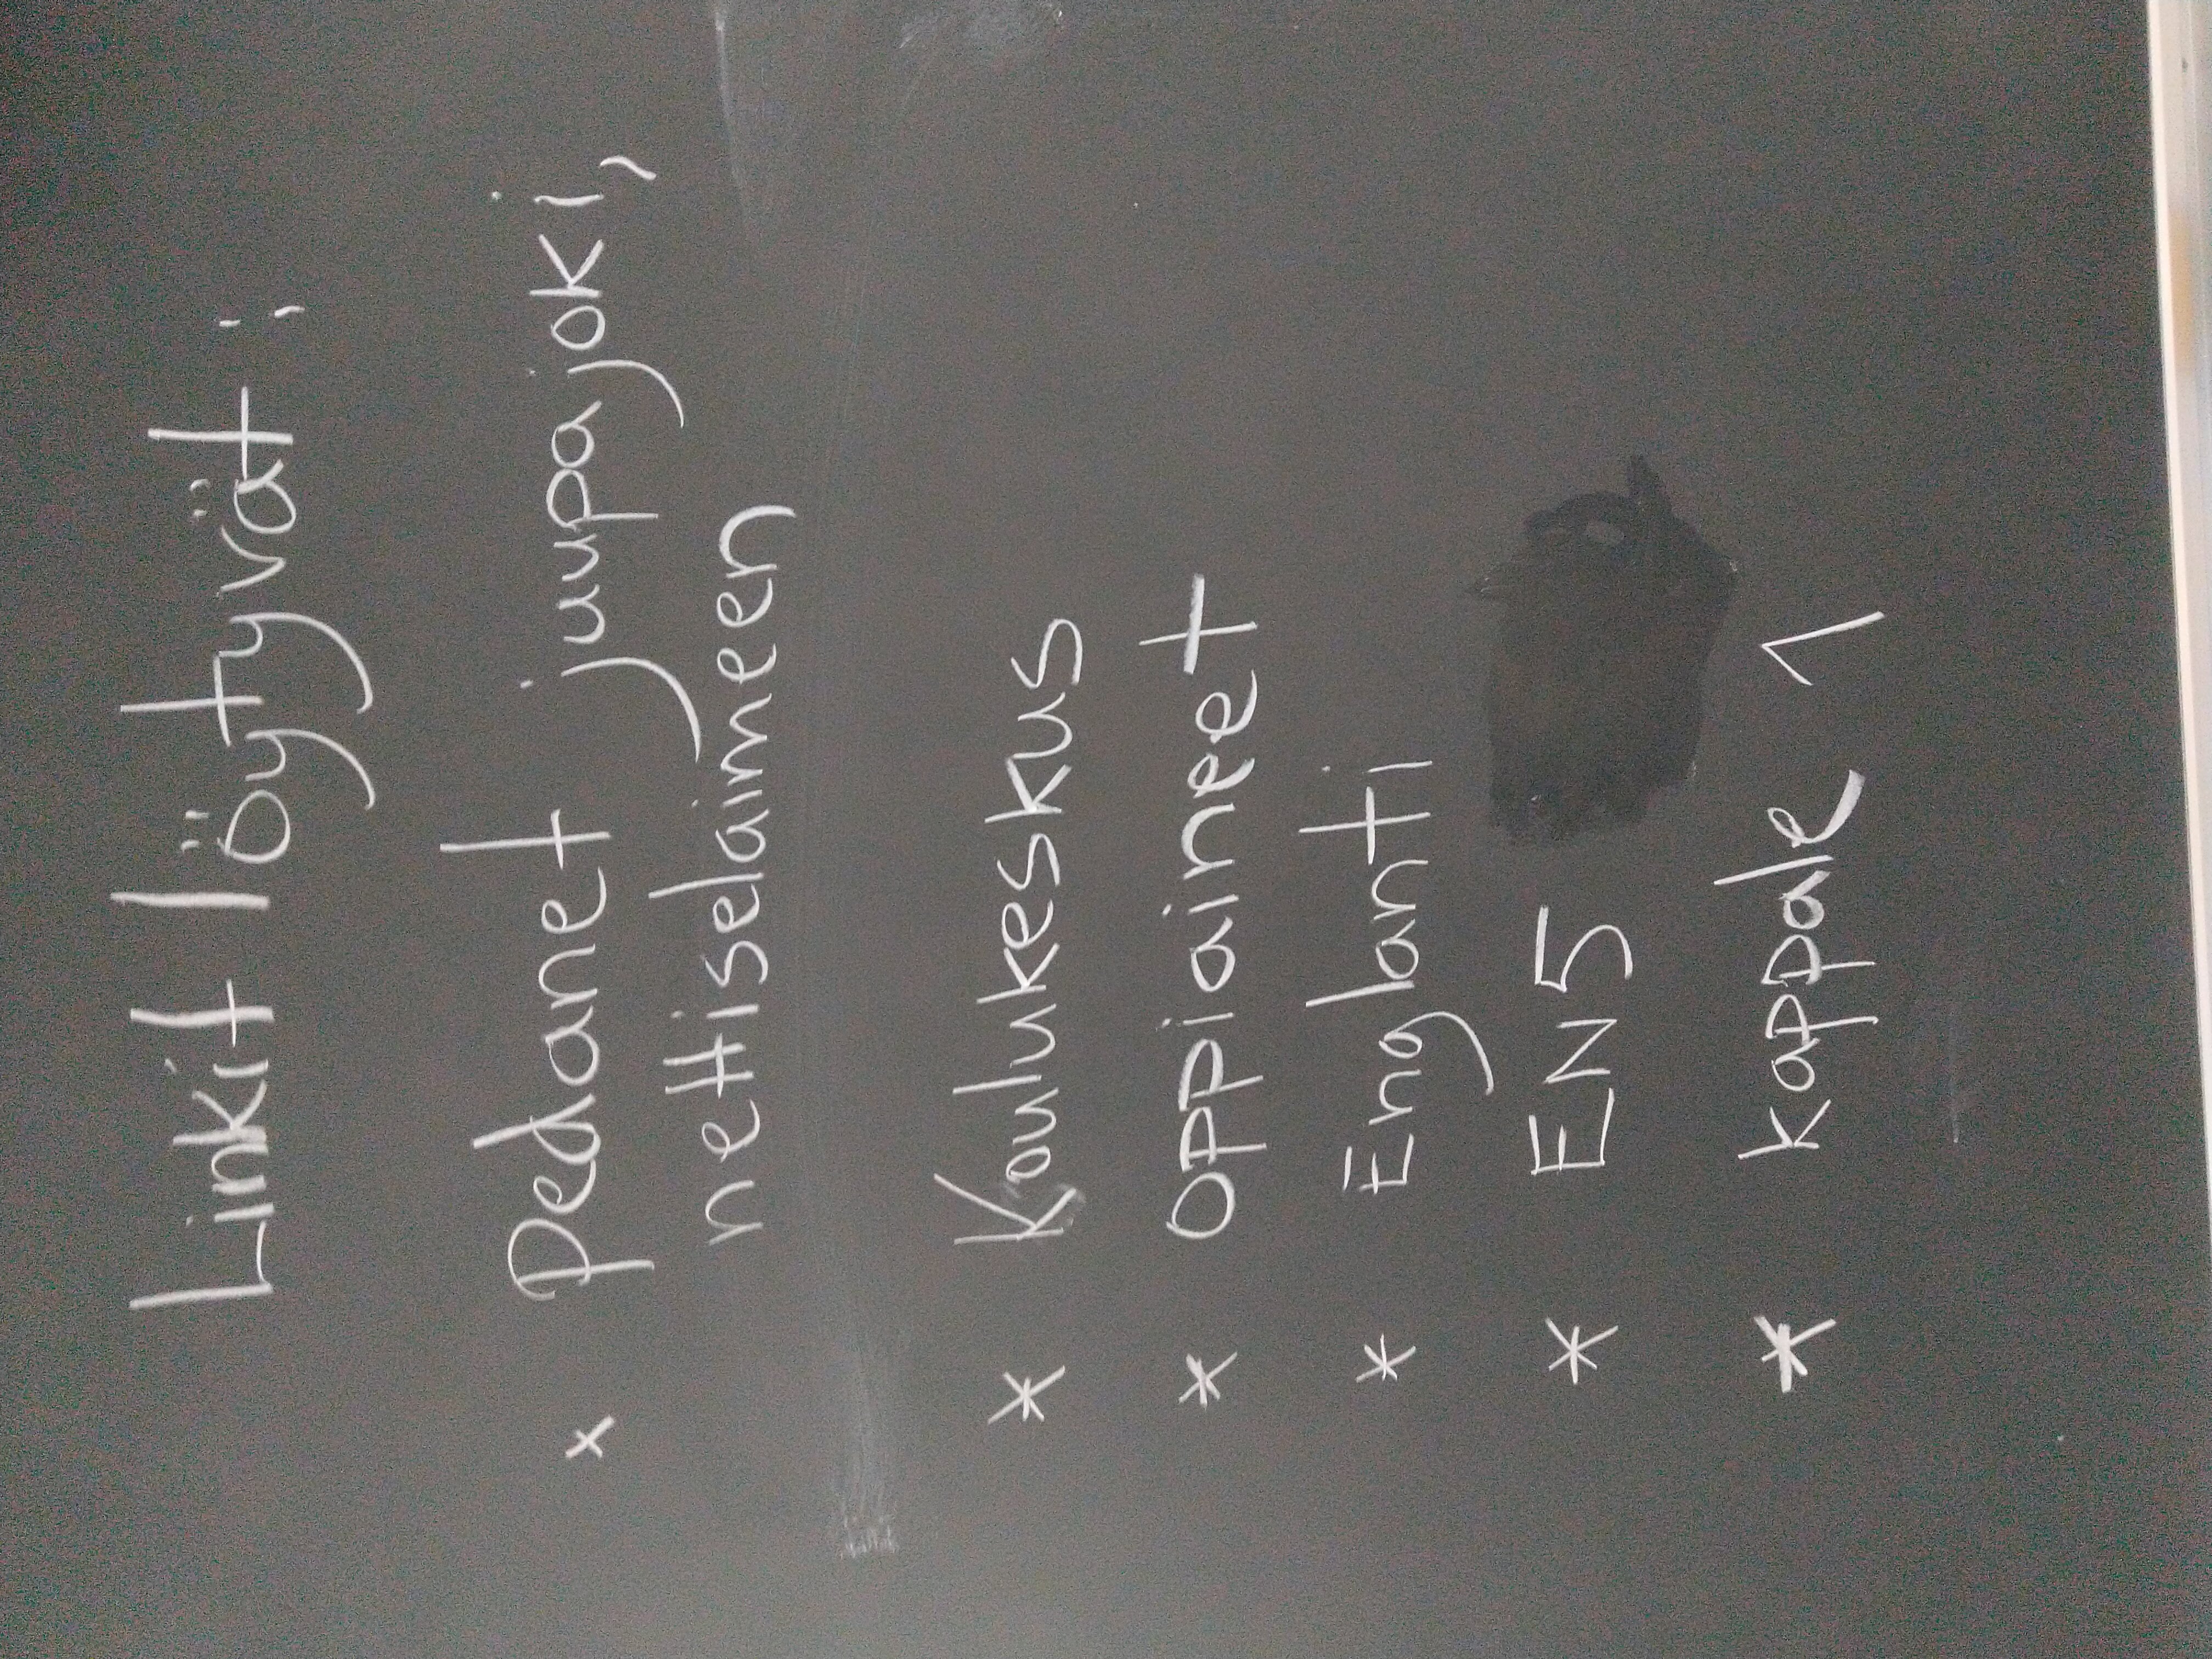 Linkit löytyvät:
* Pedanet juupajoki,
nettiselaimeen
* Koulukeskus
* oppiaineet
* Englanti
* EN5
* kappale 1